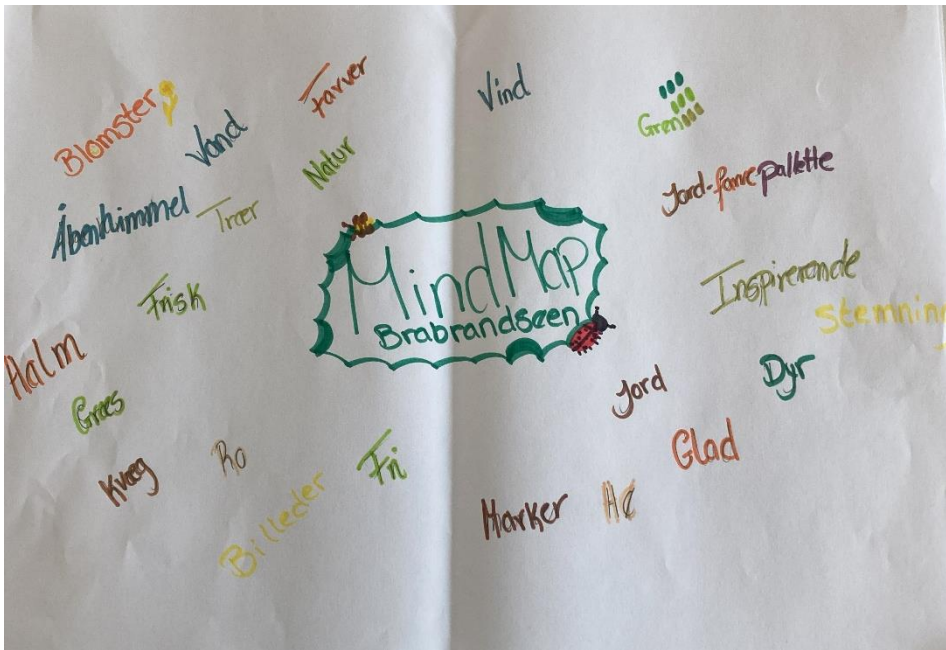 Blomster
Vand
Farver
Vind
Gren
Natur
Jord-farve pallette
Åbenhimmel
Træer
MindMap
Brabrandsøen
Inspirerende
stemning
Frisk
Halm
Græs
Jord
Dyr
Glad
Kvæg
Ro
Fri
Billeder
Marker